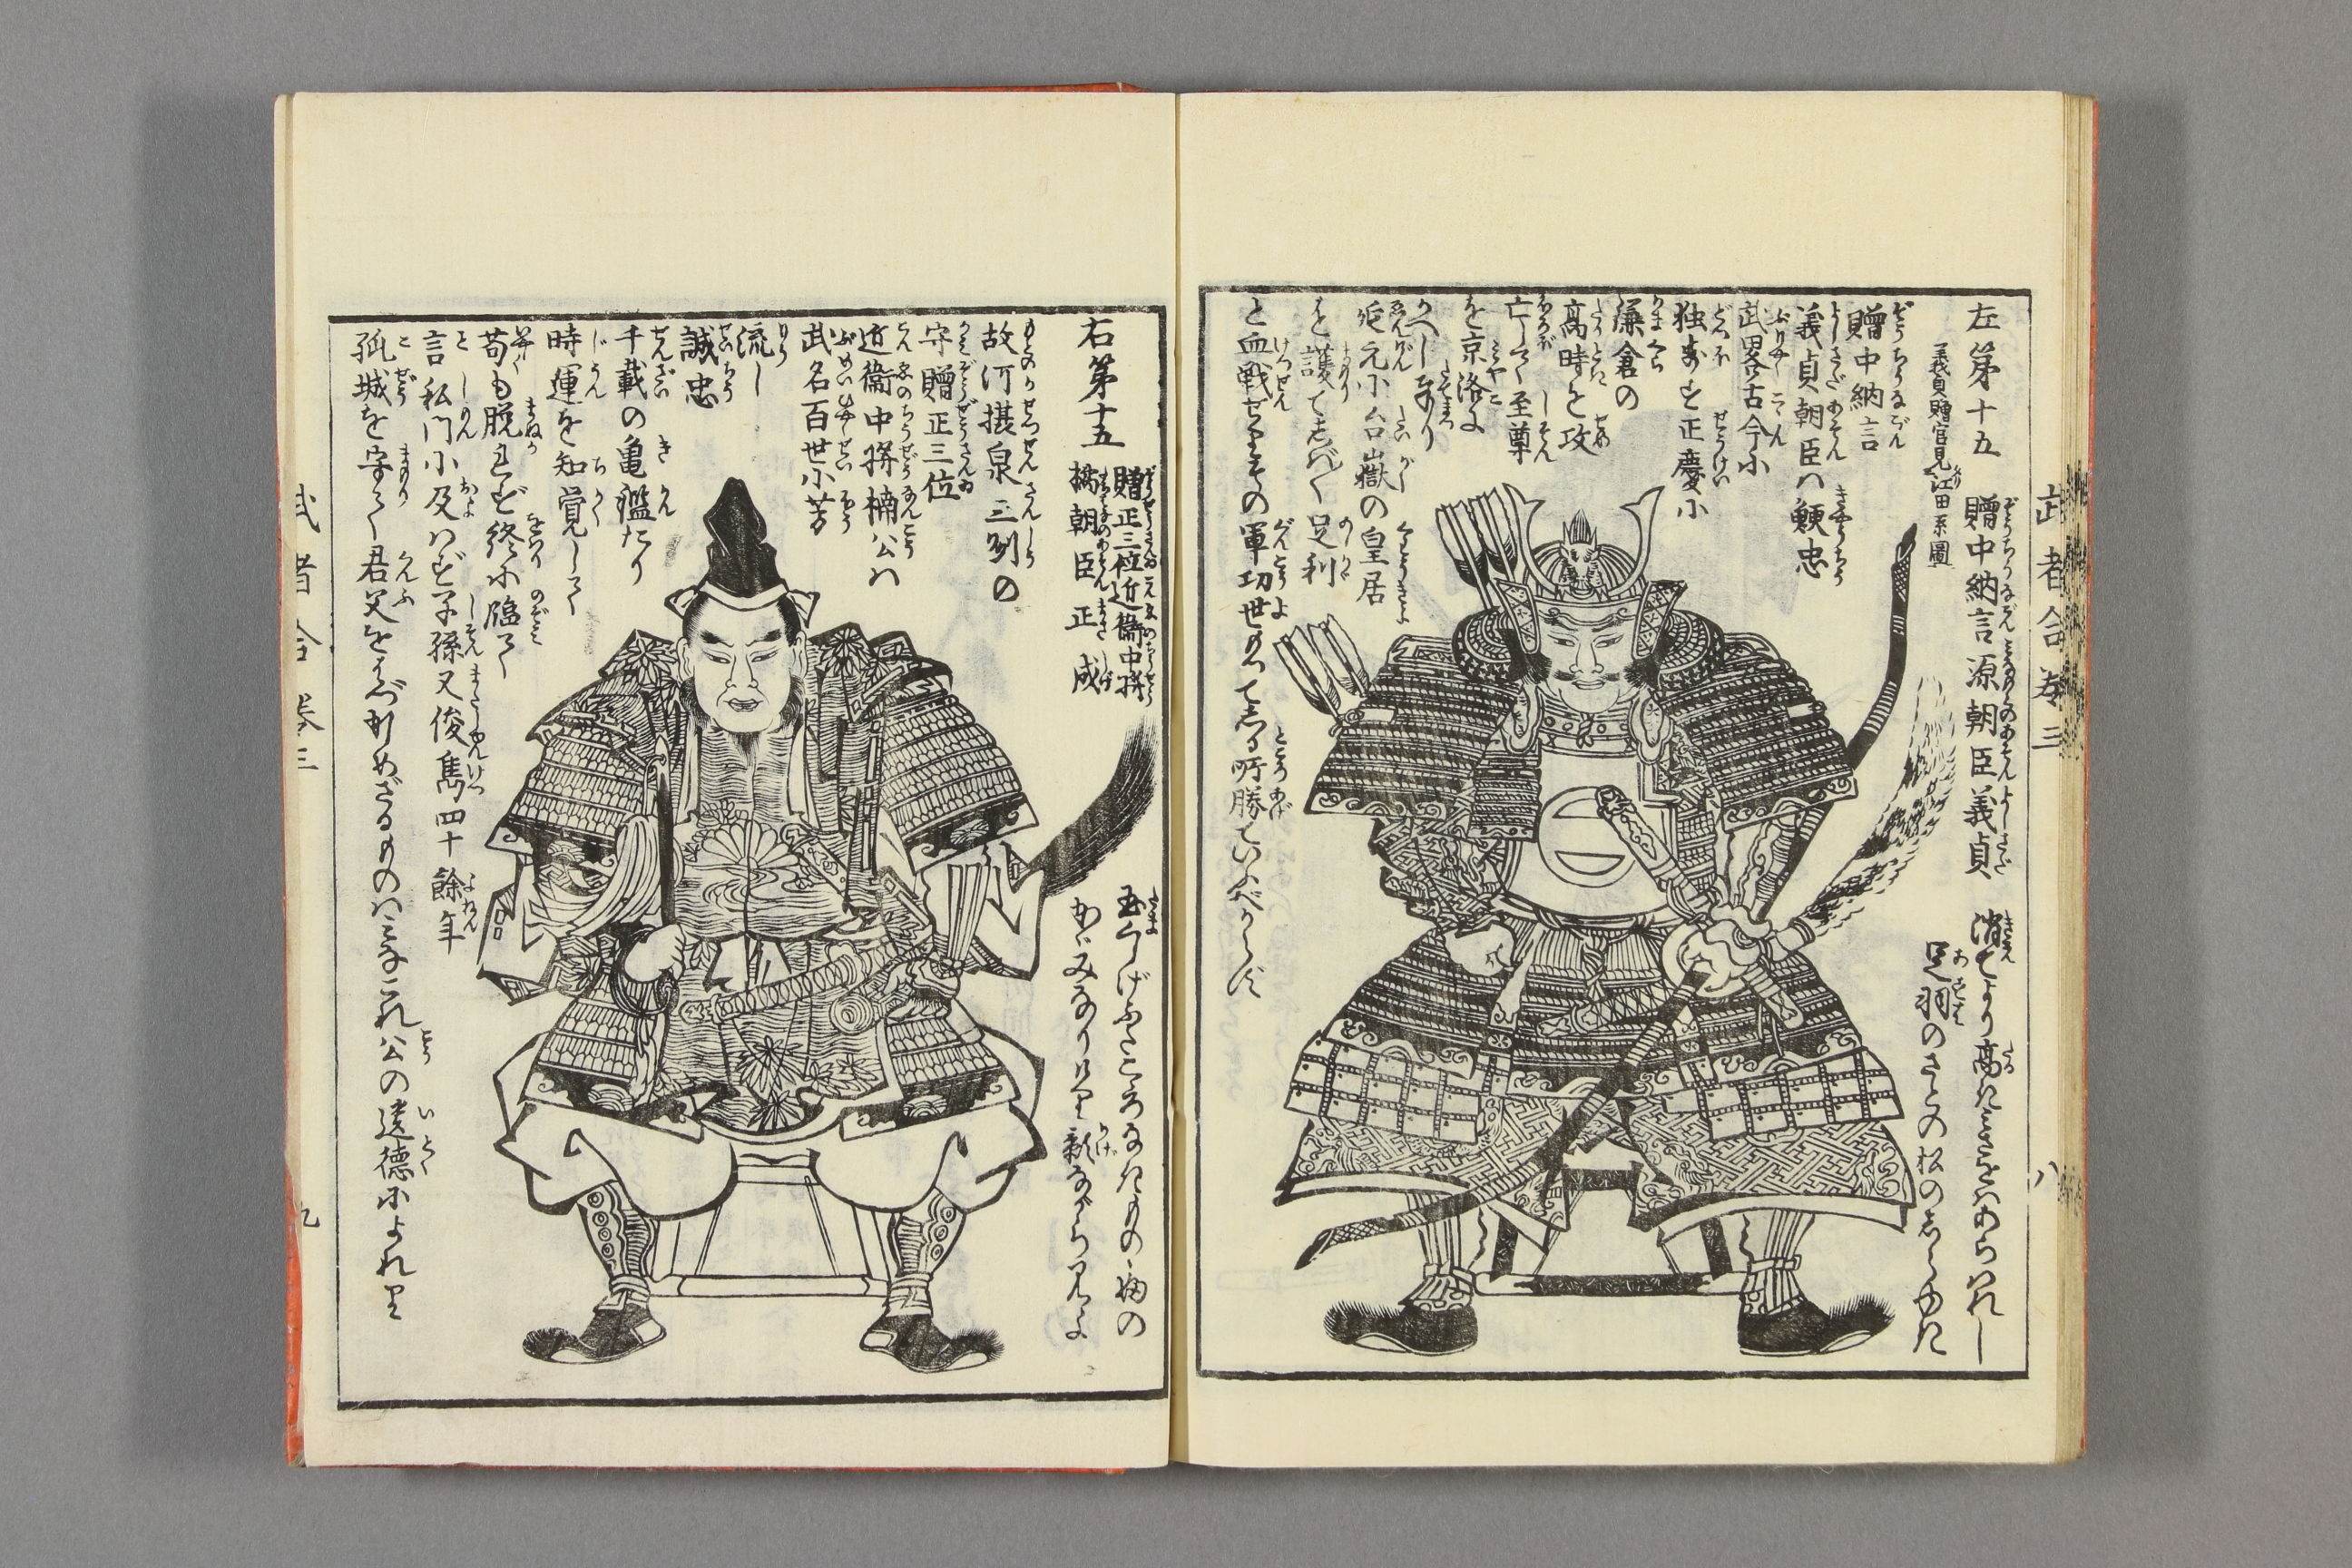 武者合巻三
八
左第十五
贈中納言源朝臣義貞
義貞贈官見江田系圖
消てより高きミさをハあらハれし
足羽のさとの松のしらゆき
贈中納言
義貞朝臣ハ鯁忠
武畧古今に
独歩す正慶に
鎌倉の
高時を攻
亡して至尊
を京洛に
かへし奉り
延元に台嶽の皇居
を護てしばしば足利
と血戦せりその軍功世もつてしる所勝ていふべからず
右第十五
贈正三位近衞中将
橘朝臣正成
かゞみなりけり影ながら見よ
故河摂泉三刕の
守贈正三位
近衞中将楠公ハ
武名百世に芳
流し
誠忠
千載の亀鑑たり
時運を知覚して
苟も脱れず終に臨て
言私門に及ハず子孫又俊雋四十餘年
孤城を守て君父をはづかしめざるものハミなこれ公の遺徳によれり
武者合巻三
九